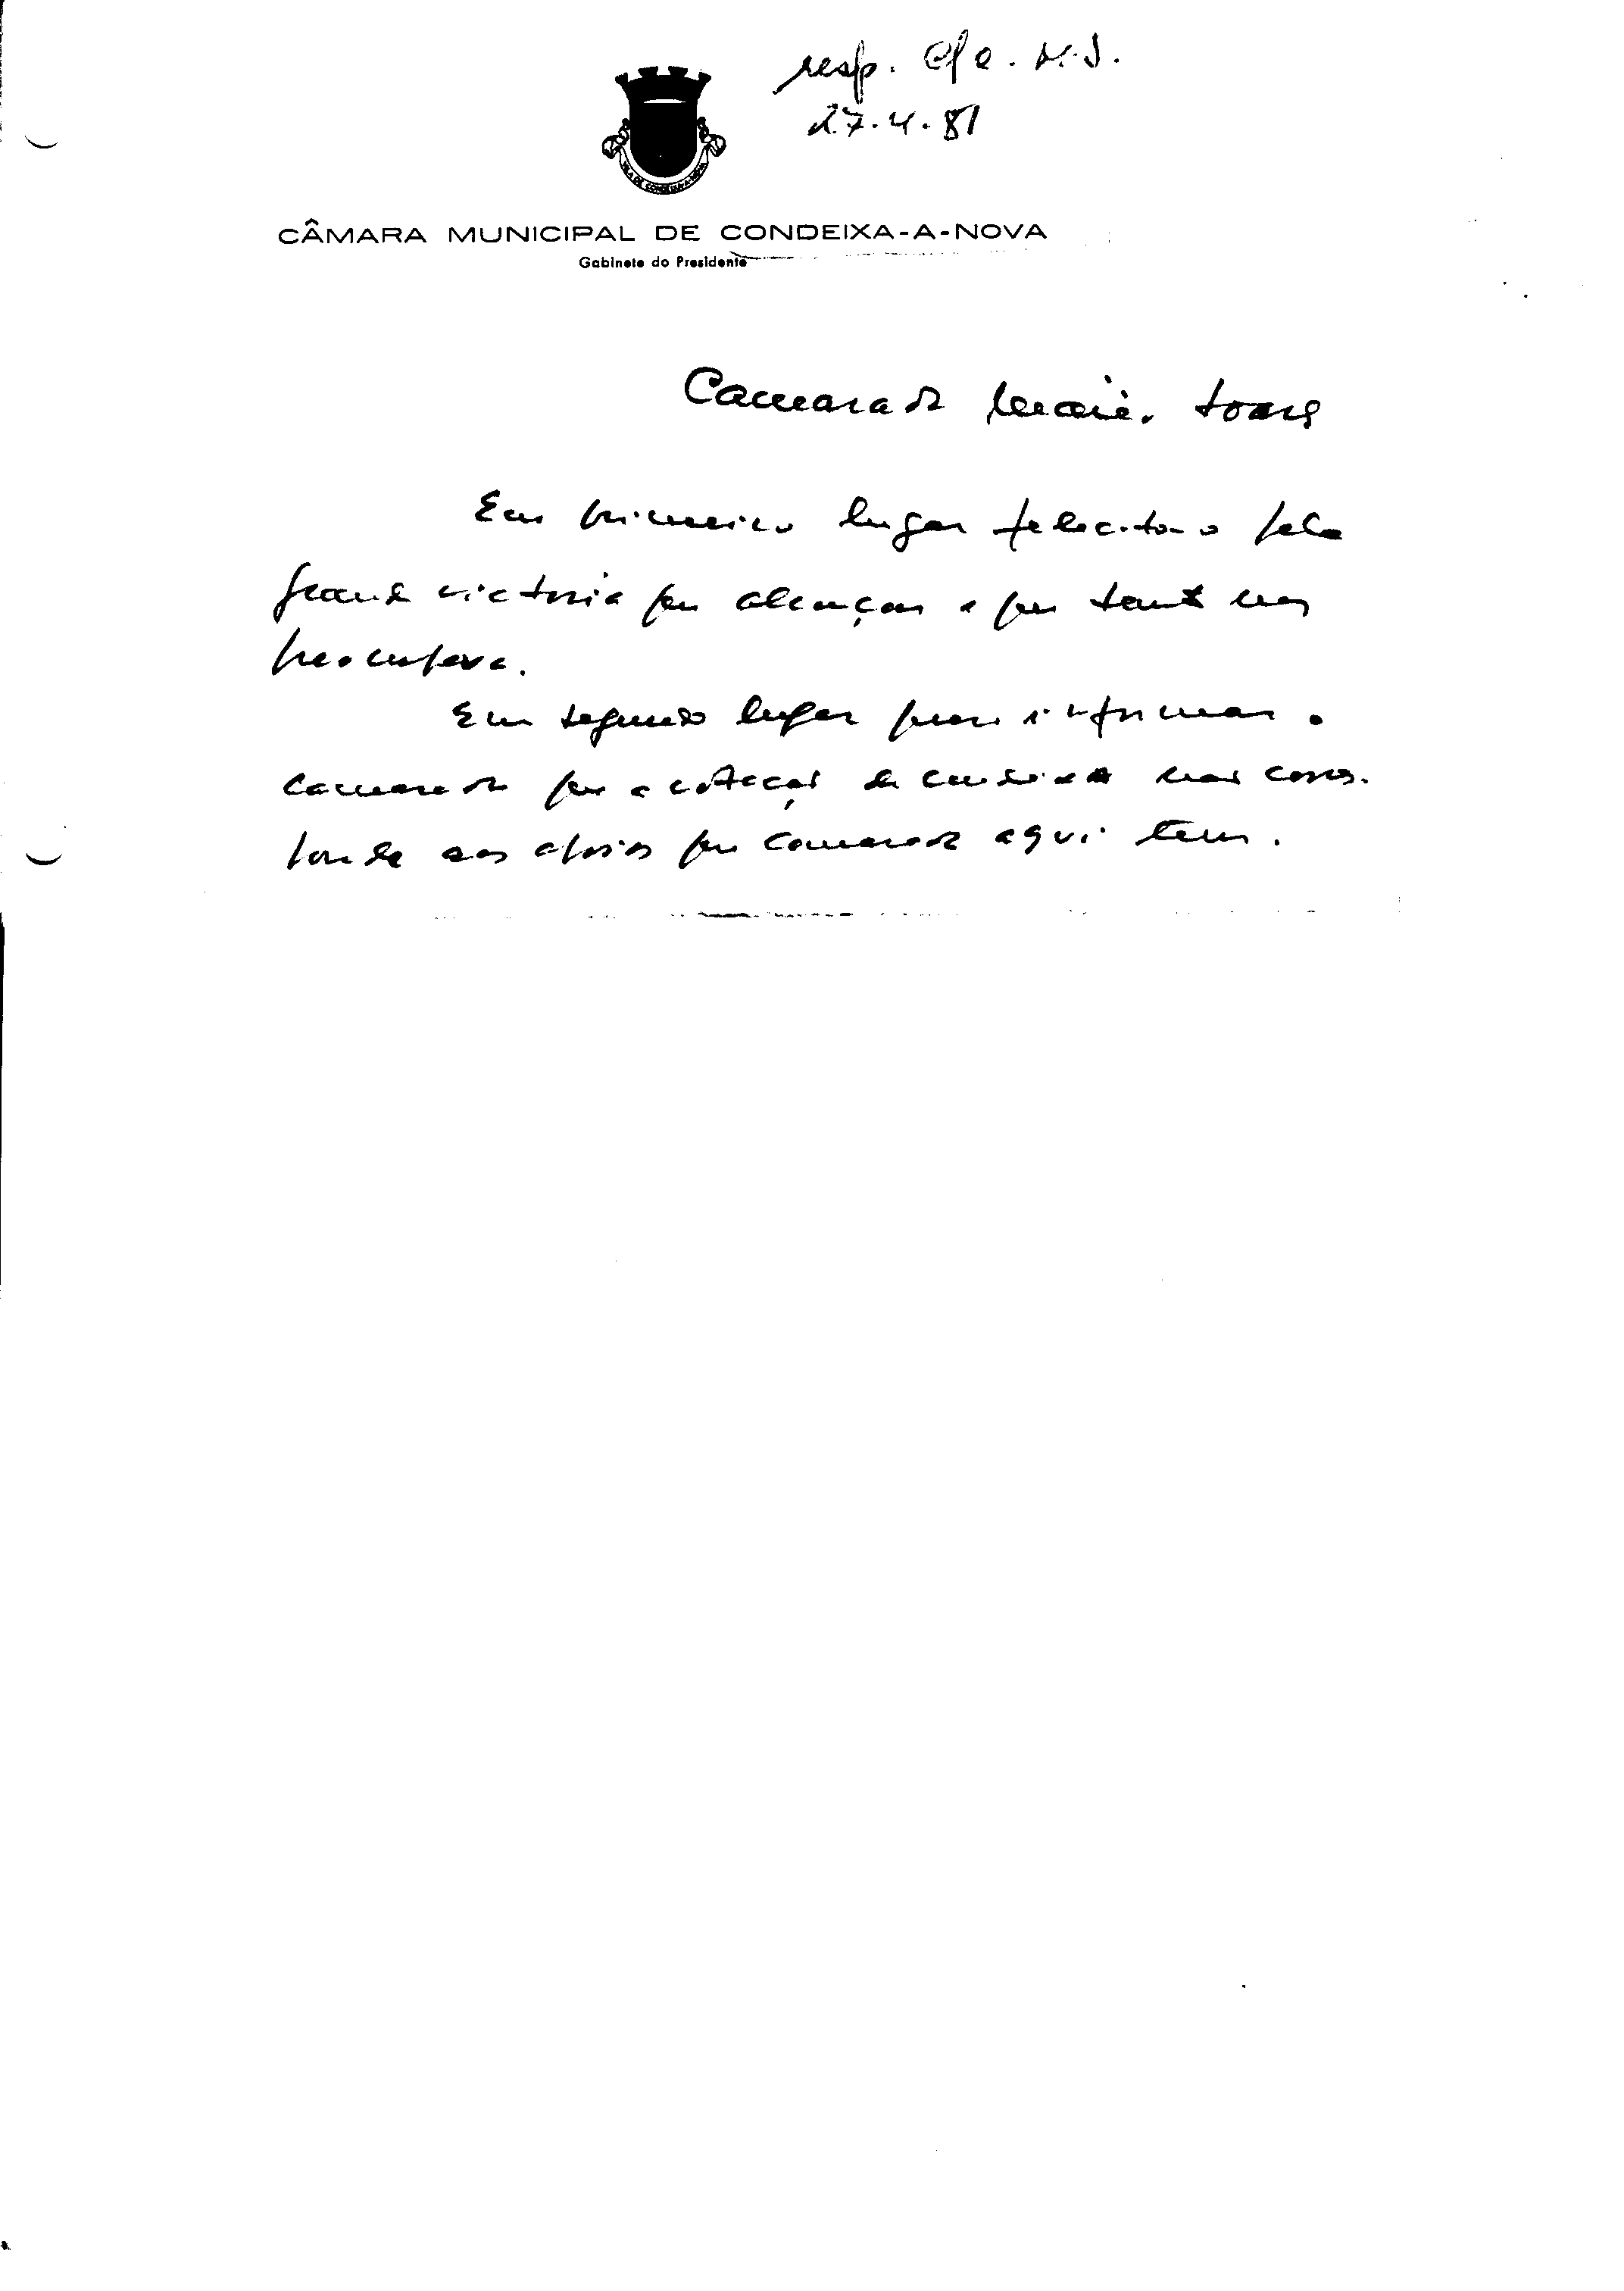 resp. c/c. M.S.
27.4.81
VILA DE CONDEIXA-A-NOVA
CÂMARA MUNICIPAL DE CONDEIXA-A-NOVA
Gabinete do Presidente
Camarada Mário Soares
Em primeiro lugar felicito-o pela
grande victoria que alcançou e que tanto nos
preocupava.
Em segundo lugar quero informar o
camarada que a votação de Condeixa não corres-
ponde aos apoios que camarada aqui tem.